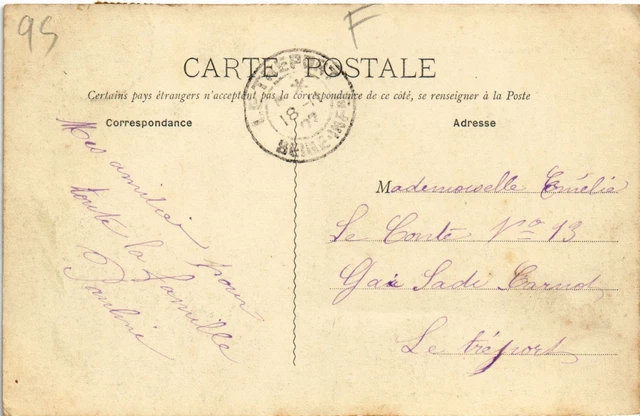 95
F
CARTE POSTALE
Certains pays étrangers n'acceptent pas la correspondance de ce côté, se renseigner à la Poste
LE TRÉPORT
18
SEINE-INFRE
Correspondance
Adresse
Mes amitiés pour
toute la famille
Pauline
Mademoiselle Emélie
Le Conte No 13
Gai Sadi Carnot
Le tréport